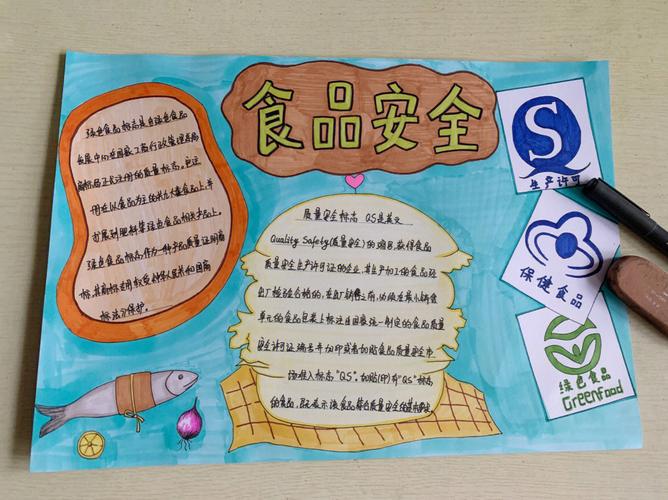 食品安全
绿色食品标志是由绿色食品
发展中心在国家工商行政管理总局
商标局正式注册的质量标志。它注
用在以食品为主的共九大类食品上,并
扩展到肥料等绿色食品相关产品上。
绿色食品标志作为一种产品质量证明商
标,其商标专用权受《中华人民共和国商
标法》保护。
质量安全标志 QS是英文
Quality Safety(质量安全)的缩写,获得食品
质量安全生产许可证的企业,其生产加工的食品经
出厂检验合格的,在出厂销售之前,必须在最小销售
单元的食品包装上标注由国家统一制定的食品质量
安全生产许可证编号并加印或者加贴食品质量安全市
场准入标志"QS"。加贴(印)有"QS"标志
的食品,既表示该食品符合质量安全的基本要求
S
生产许可
保健食品
绿色食品
Greenfood